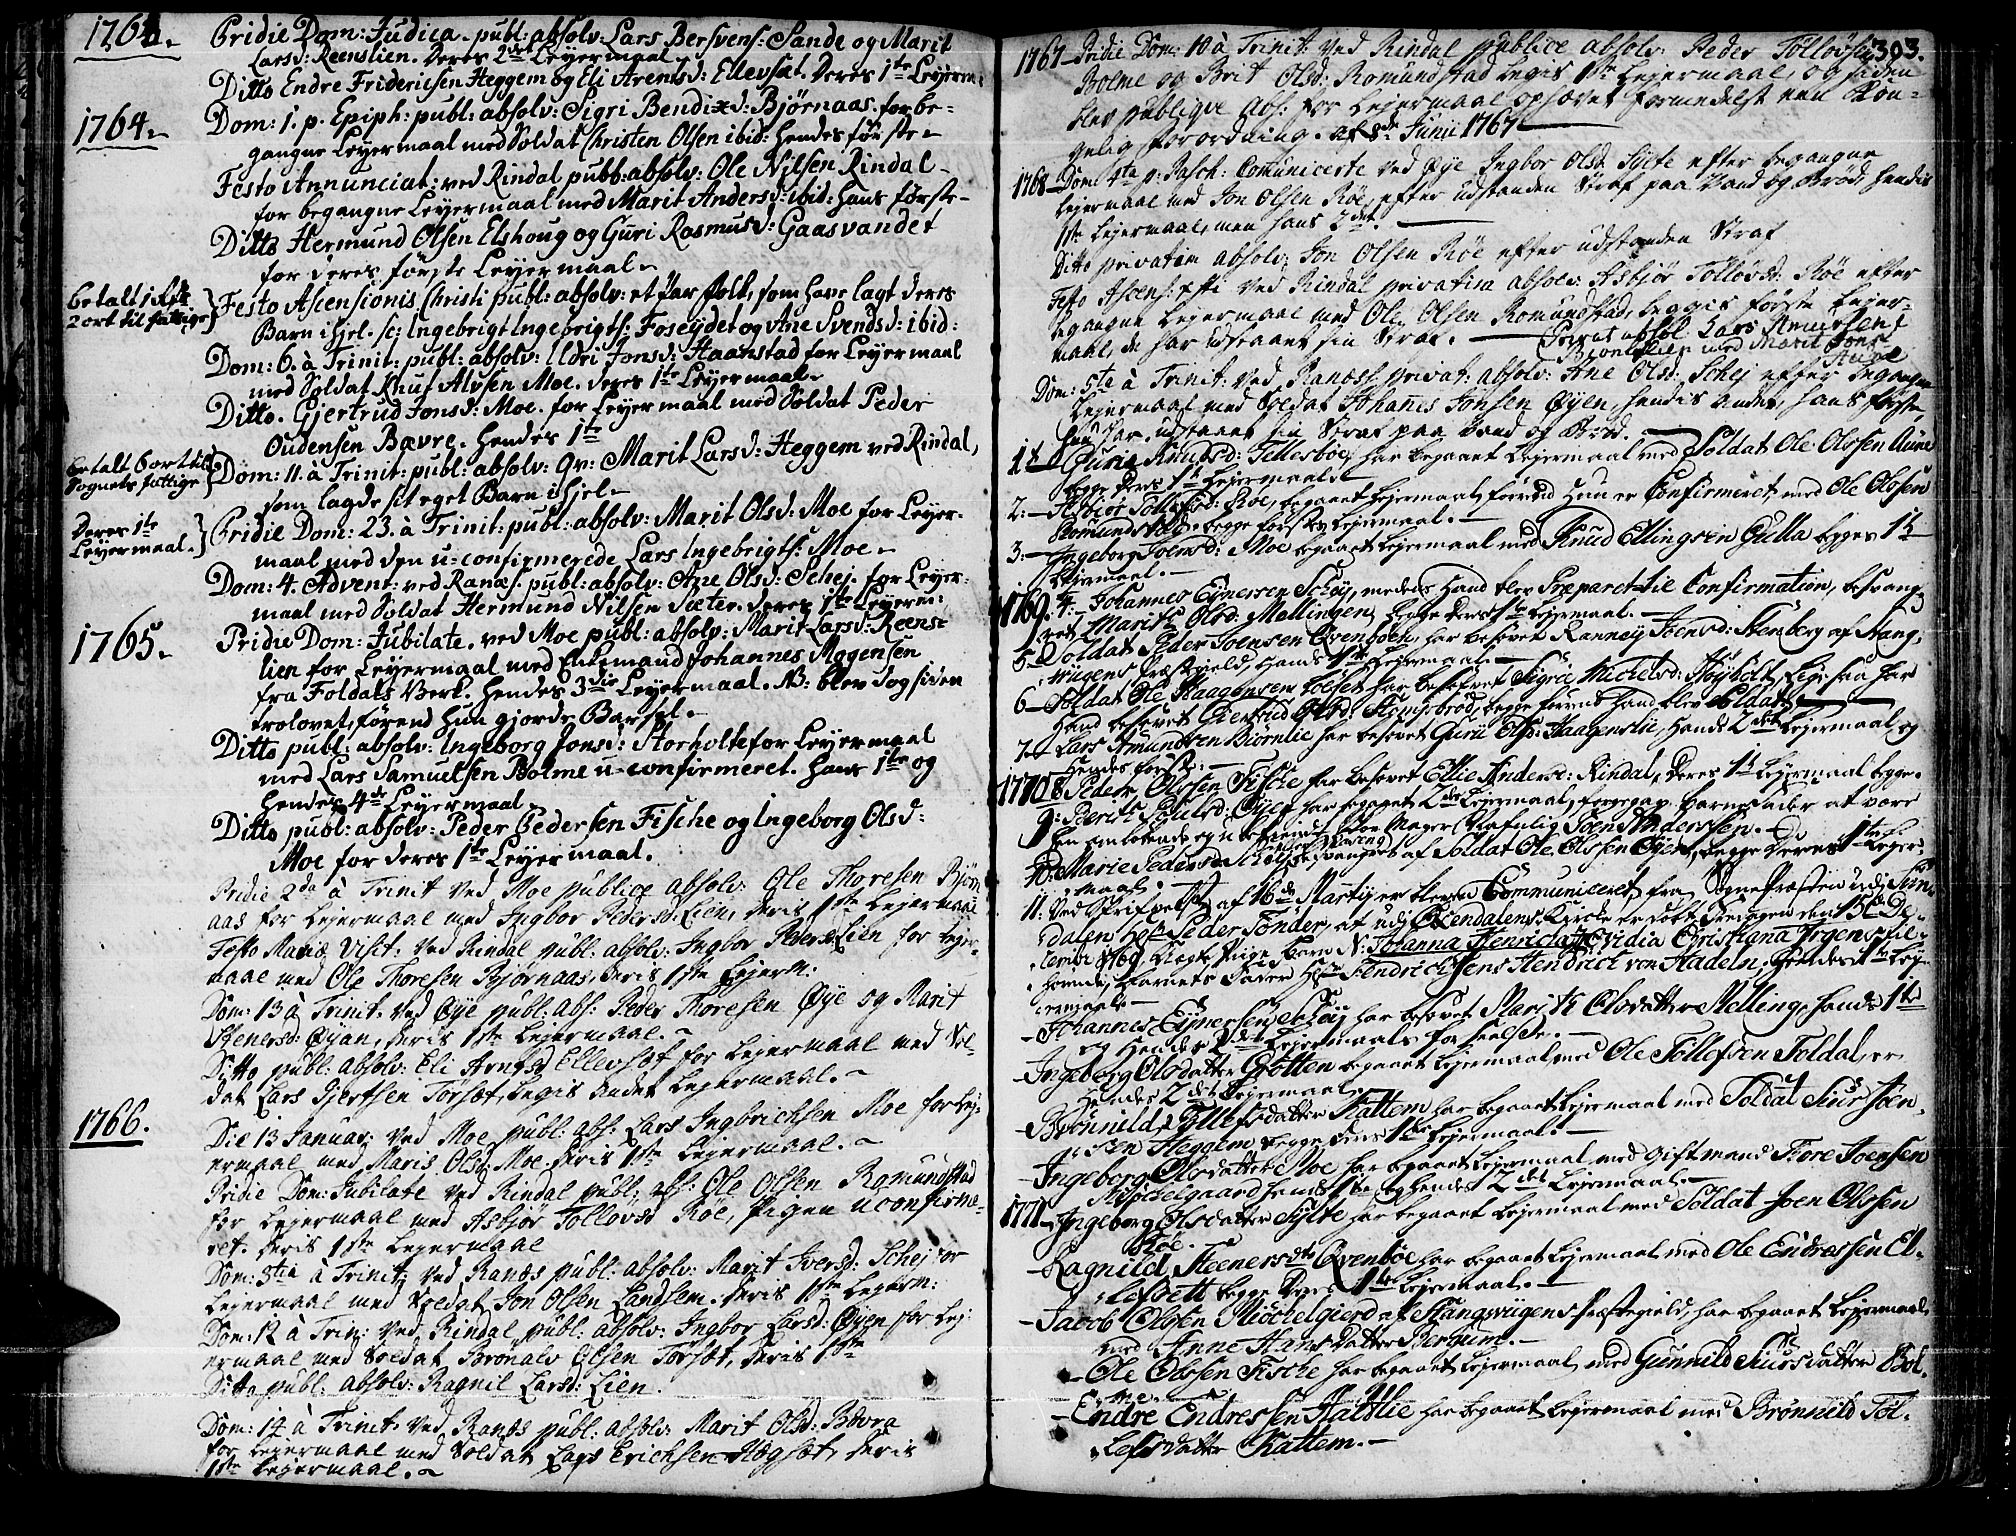 1764.
Pridie Dom: Judica. publ: absolv: Lars Bersvens: Sande og Marit
Larsd: Reenslien. Deres 2det Leyermaal
Ditto Endre Friderichsen Heggem og Eli Arentsd: Ellevset. Deres 1te Leyerm:
1764.
Dom: 1. p. Epiph: publ: absolv: Sigri Bendixd: Bjørnaas. for be-
gangne Leyermaal med Soldat Christen Olsen ibid: hendes første
Festo Annunciat: ved Rindal publ: absolv: Ole Nilsen Rindal
for begangne Leyermaal med Marit Andersd: ibid: hans første
Ditto Hermund Olsen Elshoug og Guri Rasmusd: Gaasvandet
for deres første Leyermaal
betalt 1 Rdr
2 ort til fattige
Festo Ascensionis Christi publ: absolv: et par folk, som have lagt deres
Barn ihjel. sc: Ingebrigt Ingebrigts: Foseydet og Ane Svendsd: ibid:
Dom: 6. à Trinit: publ: absolv: Ildri Jonsd: Haanstad for Leyermaal
med Soldat Knut Alvsen Moe. deres 1te Leyermaal
Ditto. Gjertrud Jonsd: Moe. for Leyermaal med Soldat Peder
Oudensen Bævre. hendes 1te
betalt 6 ort til
Sognets fattige
Dom: 11. à Trinit: publ: absolv: Qv: Marit Larsd: Heggem ved Rindal,
som lagde sit eget Barn ihjel
Deres 1te
Leyermaal.
Pridie Dom: 23. à Trinit: publ: absolv: Marit Olsd: Moe for Leyer-
maal med den u-confirmerede Lars Ingebrigts: Moe
Dom: 4. Advent: ved Ranæs. publ: absolv: Ane Olsd: Schej. for Leyer-
maal med Soldat Hermund Nilsen Sæter. deres 1te Leyerm:
1765.
Pridie Dom: Jubilate. ved Moe publ: absolv: Marit Larsd: Reens-
lien for Leyermaal med Enkemand Johannes Mogensen
fra Foldals Verk. hendes 3die Leyermaal. NB: blev dog siden
trolovet, førend hun gjorde Barsel
Ditto publ: absolv: Ingeborg Jonsd: Storholte for Leyermaal
med Lars Samuelsen Bolme u-confirmeret. hans 1te og
hendes 4de Leyermaal
Ditto publ: absolv: Peder Pedersen Fische og Ingeborg Olsd:
Moe for deres 1te Leyermaal.
Pridie 2da à Trinit ved Moe publice absolv: Ole Thoresen Bjørn
aas for Lejermaal med Ingbor Pedersd: Lien, deris 1ste Lejermaal
Festo Mariæ Visit: ved Rindal publ: absolv: Ingbor Pedersd Lien for Lejer-
maal med Ole Thoresen Bjørnaas, deris 1ste Lejerm:
Dom: 13 à Trinit. ved Øye publ: abs: Peder Thoresen Øye og Marit
Stenersd: Øyan, deris 1ste Lejermaal
Ditto publ: absolv: Eli Arnsd Ellevset for Lejermaal med Sol-
dat Lars Gjertsen Torset, begis andet Lejermaal.
1766.
Die 13 Januar: ved Moe publ: abs: Lars Ingbrichsen Moe for Lej-
ermaal med Maris Olsd: Moe deris 1ste Lejermaal.
Pridie Dom: Jubilate ved Rindal publ: abs: Ole Olsen Romundstad
for Lejermaal med Asbjør Tollovsd Roe, Pigen uconfirme-
ret. deris 1ste Lejermaal
Dom: 3tia à Trinit: ved Ranæs publ: absolv: Marit Iversd: Schej for
Lejermaal med Soldat Jon Olsen Landsem. deris 1ste Lejerm:
Dom: 12 à Trin: ved Rindal publ: absolv: Ingbor Larsd: Øyen for Lej-
ermaal med Soldat Bronalv Olsen Torset, deris 1ste
Ditto publ: absolv: Ragnil Larsd: Lien.
Dom: 14 à Trinit. ved Ranæs publ: absolv: Marit Olsd: Bævra
for Lejermaal med Soldat Lars Erichsen Hægset, deris
1ste Lejermaal.
303.
1767 Pridie Dom: 10 à Trinit: ved Rindal publice absolv: Peder Tollovsen
Bolme og Brit Olsd: Romundstad begis 1ste Lejermaal, og siden
blev publiqve abs: for Lejermaal ophævet formedelst een Kon-
gelig Forordning. af 8de Junii 1767
1768 Dom: 4ta p: Pasch: Comunicerte ved Øye Ingbor Olsd: Sylte efter begangne
Lejermaal med Jon Olsen Røe, efter udstanden Straf paa Vand og Brød, hendis
1ste Lejermaal, men hans 2det.
Ditto privatim absolv: Jon Olsen Røe efter udstanden Straf
Festo Ascens: Xsti ved Rindal privatim absolv: Asbjør Tollovsd: Røe efter
begangne Lejermaal med Ole Olsen Romundstad, beggis første Lejer-
maal, de har udstaaet sin Straf. Privat absol: Lars Amundsen
Biørnlien med Marit Jonsd
Aune
Dom: 5te à Trinit: ved Ranæss privat: absolv: Ane Olsd: Schej efter begangne
Lejermaal med Soldat Johanes Jonsen Øyen, hendis andet, hans første
hun har udstaaet sin Straf paa Vand og Brød.
1t Guria Knudsd: Tellesboe har begaaet Lejermaal med Soldat Ole Olssen Aune
begge deres 1te Lejermaal.
2: Asbiør Tollefsd: Roe, begaaet Lejermaal, førend Hun er Confirmeret med Ole Olssen
Romundstad. begge første Lejermaal.
3: Ingeborg Joensd: Moe begaaet Lejermaal med Knud Ellingsen Gulla begges 1te
Lejermaal.
1769. 4. Johannes Eynersen Schøy, medens Hand blev Præparet til Confirmation, besvang-
ret Marith Olsd: Mellingen, begge deres 1te Lejermaal.
5 Soldat Peder Joensen Qvenboen, har besovet Ranney Joensd: Stenberg af Stang-
wiigens Præstegield, Hands 1te Lejermaal.
6 Soldat Ole Haagensen Løeset har besovet Sigrie Michelsd: Høyholt, Lige saa har
Hand besovet Giertrud Olsd: begge førend Hand blev Soldat.
7 Lars Amundsen Biørnlie har besovet Guru Olsd: Haagenslie, Hands 2det Lejermaal og
Hendes første.
1770. 8 Peder Olssen Fische har besovet Ellie Andersd: Rindal, deres 1te Lejermaal begge.
9: Berith Poulsd: Øyen har begaaet 2det Lejermaal, foregav Barnefader at være
en omløbende og ubekiendt Nafnlig Joen Anderssen.
10: Marie Pedersd: Scholse besvangret af Soldat Ole Olssen Øyen, begge deres 1te Lejer-
maal.
11: Ved Skrivelse af 16de Martij er bleven Communiceret fra Sogne Præsten udi Sun-
dalen Hr Peder Tønder, at udi Øxendalens Kirke er døbt Søndagen den 15de De-
cembr 1769. Uægte Pige Barn N: Johanna Henricha Ovidia Christiana Jrgens til-
hørende, Barnets Fader Hr Fendrich Jens Hendrich von Hadeln, Hendes 1te Lej-
ermaal.
Johannes Eynersen Schøy har besovet Marith Olsdatter Melling, hands 1te
og Hendes 2det Lejermaal.
Ingeborg Olsdatter Grotten begaaet Lejermaal med Ole Tollefsen Foldal, er
Hendes 2det Lejermaal.
Brønnild Tollefsdatter Kattem har begaaet Lejermaal med Soldat Siur Joen-
sen Heggem begge deres 1te Lejermaal.
Ingeborg Olsdatter Moe har begaaet Lejermaal med Giftmand Tore Joensen
Mochelgaard hands 1te og hendes 2det Lejermaal.
1771. Ingeborg Olsdatter Sylte har begaaet Lejermaal med Soldat Joen Olssen
Røe.
Ragnild Steenersdtr Qvenboe har begaaet Lejermaal med Ole Endressen El-
lefsett begge deres 1te Lejermaal.
Jacob Olssen Mochelgierd af Stangwiigens Præstegield, har begaaet Lejermaal
med Anne Hansdatter Bergum.
Ole Olssen Fische har begaaet Lejermaal med Gunnild Siursdatter Bol-
me.
Endre Endressen Hatlie har begaaet Lejermaal med Brønnild Tol-
lefsdatter Kattem.